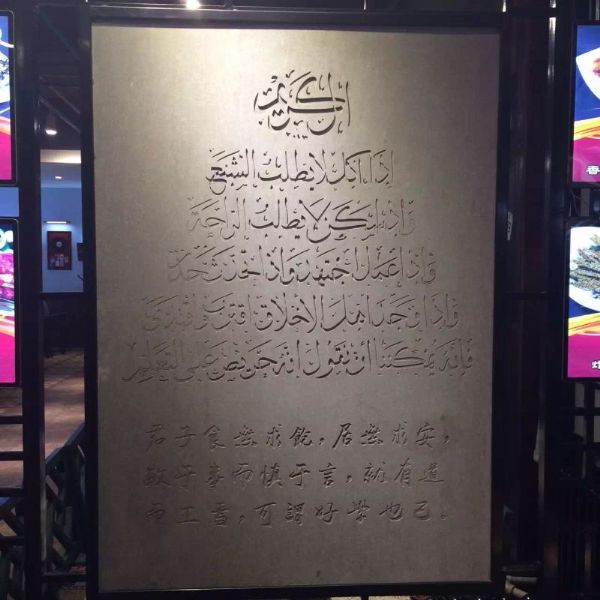 الكريم
إذا أكل لا يطلب الشبع
وإذا سكن لا يطلب الراحة
وإذا عمل اجتهد وإذا تحدث
وإذا وجد اهل الاخلاق اقترب
فإنه يمكننا أن نقول انه حريص على التعلم
君子食無求飽，居無求安，
敏于事而慎于言，就有道
而正焉，可謂好學也已。
香